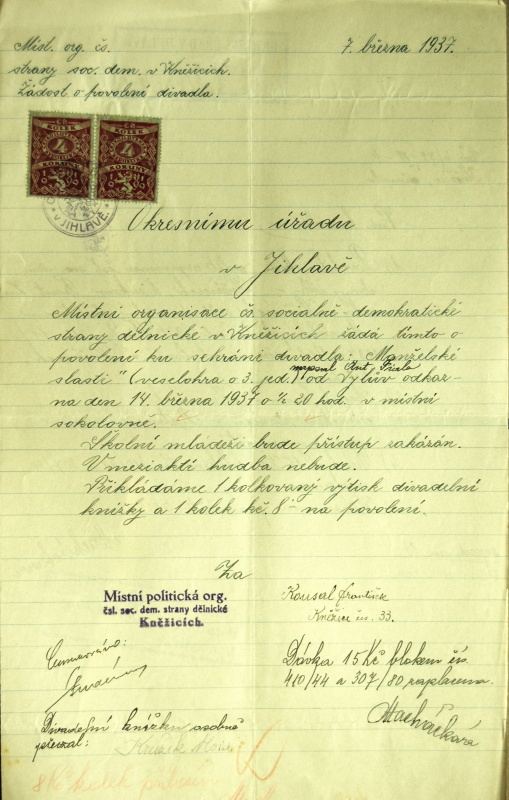 Míst. org. čs.
7. března 1937.
strany soc. dem. v Kněžicích.
Žádost o povolení divadla.
KOLEK
4
KORUNY
KOLEK
4
KORUNY
V JIHLAVĚ
Okresnímu úřadu
v Jihlavě
Místní organisace čs. socialně-demokratické
strany dělnické v Kněžicích žádá tímto o
povolení ku sehrání divadla: „Manželské
napsal Ant. Fiala
slasti" (veselohra o 3. jed.) od
na den 14. března 1937 o ½ 20 hod. v místní
sokolovně.
Školní mládeži bude přístup zakázán.
V meziaktí hudba nebude.
Přikládáme 1 kolkovaný výtisk divadelní
knížky a 1 kolek kč. 8- na povolení.
Za
Místní politická org.
čsl. soc. dem. strany dělnické
Kněžicích.
Kousal František
Kněžice čs. 33.
Dávka 15 Kč blokem čís.
410/44 a 307/80 zaplacena.
Divadelní knížku osobně
převzal:
8 Kč kolek